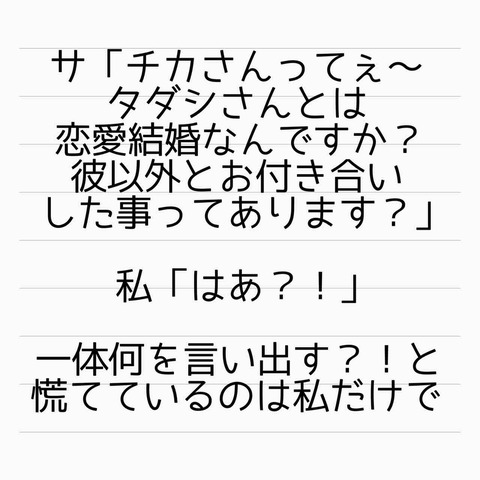 サ「チカさんってぇ〜
タダシさんとは
恋愛結婚なんですか？
彼以外とお付き合い
した事ってあります？」
私「はあ？！」
一体何を言い出す？！と
慌てているのは私だけで